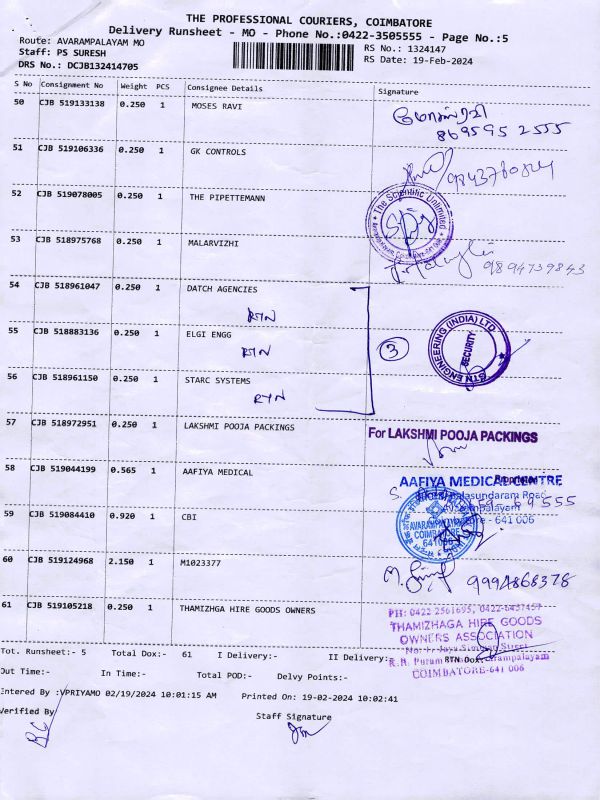 THE PROFESSIONAL COURIERS, COIMBATORE
Delivery Runsheet - MO - Phone No.:0422-3505555 - Page No.:5
Route: AVARAMPALAYAM MO
RS No.: 1324147
Staff: PS SURESH
RS Date: 19-Feb-2024
DRS No.: DCJB132414705
S No Consignment No Weight PCS Consignee Details Signature
50 CJB 519133138 0.250 1 MOSES RAVI
8695952555
51 CJB 519106336 0.250 1 GK CONTROLS
52 CJB 519078005 0.250 1 THE PIPETTEMANN
The Scientific Unlimited
53 CJB 518975768 0.250 1 MALARVIZHI
9894739843
54 CJB 518961047 0.250 1 DATCH AGENCIES
RTN
55 CJB 518883136 0.250 1 ELGI ENGG
RTN
3
GTN ENGINEERING (INDIA) LTD
SECURITY
56 CJB 518961150 0.250 1 STARC SYSTEMS
RTN
57 CJB 518972951 0.250 1 LAKSHMI POOJA PACKINGS
For LAKSHMI POOJA PACKINGS
58 CJB 519044199 0.565 1 AAFIYA MEDICAL
AAFIYA MEDICAL CENTRE
59 CJB 519084410 0.920 1 CBI
AVARAMPALAYAM
COIMBATORE
- 641 006
60 CJB 519124968 2.150 1 M1023377
9994868378
61 CJB 519105218 0.250 1 THAMIZHGA HIRE GOODS OWNERS
PH: 0422 2561695, 0422-6457457
THAMIZHAGA HIRE GOODS
OWNERS ASSOCIATION
COIMBATORE-641 006
Tot. Runsheet:- 5 Total Dox:- 61 I Delivery:- II Delivery:- RTN Dox:-
Out Time:- In Time:- Total POD:- Delvy Points:-
Entered By :VPRIYAMO 02/19/2024 10:01:15 AM Printed On: 19-02-2024 10:02:41
Verified By
Staff Signature